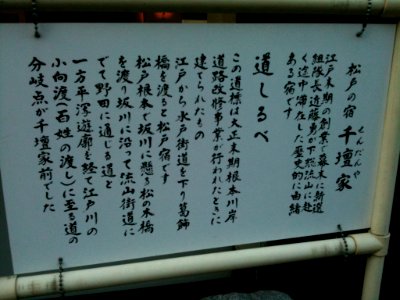 松戸の宿 千檀家
せんだんや
江戸末期の創業で幕末に新選
組隊長近藤勇が下総流山に赴
く途中滞在した歴史的に由緒
ある宿です
道しるべ
この道標は大正末期根本川岸
道路改修事業が行われたときに
建てられたもの
江戸から水戸街道を下り葛飾
橋を渡ると松戸宿です
松戸根本で坂川に懸る松の木橋
を渡り坂川に沿って流山街道に
でて野田に通じる道と
一方平潟遊廓を経て江戸川の
小向渡(百姓の渡し)に至る道の
分岐点が千檀家前でした